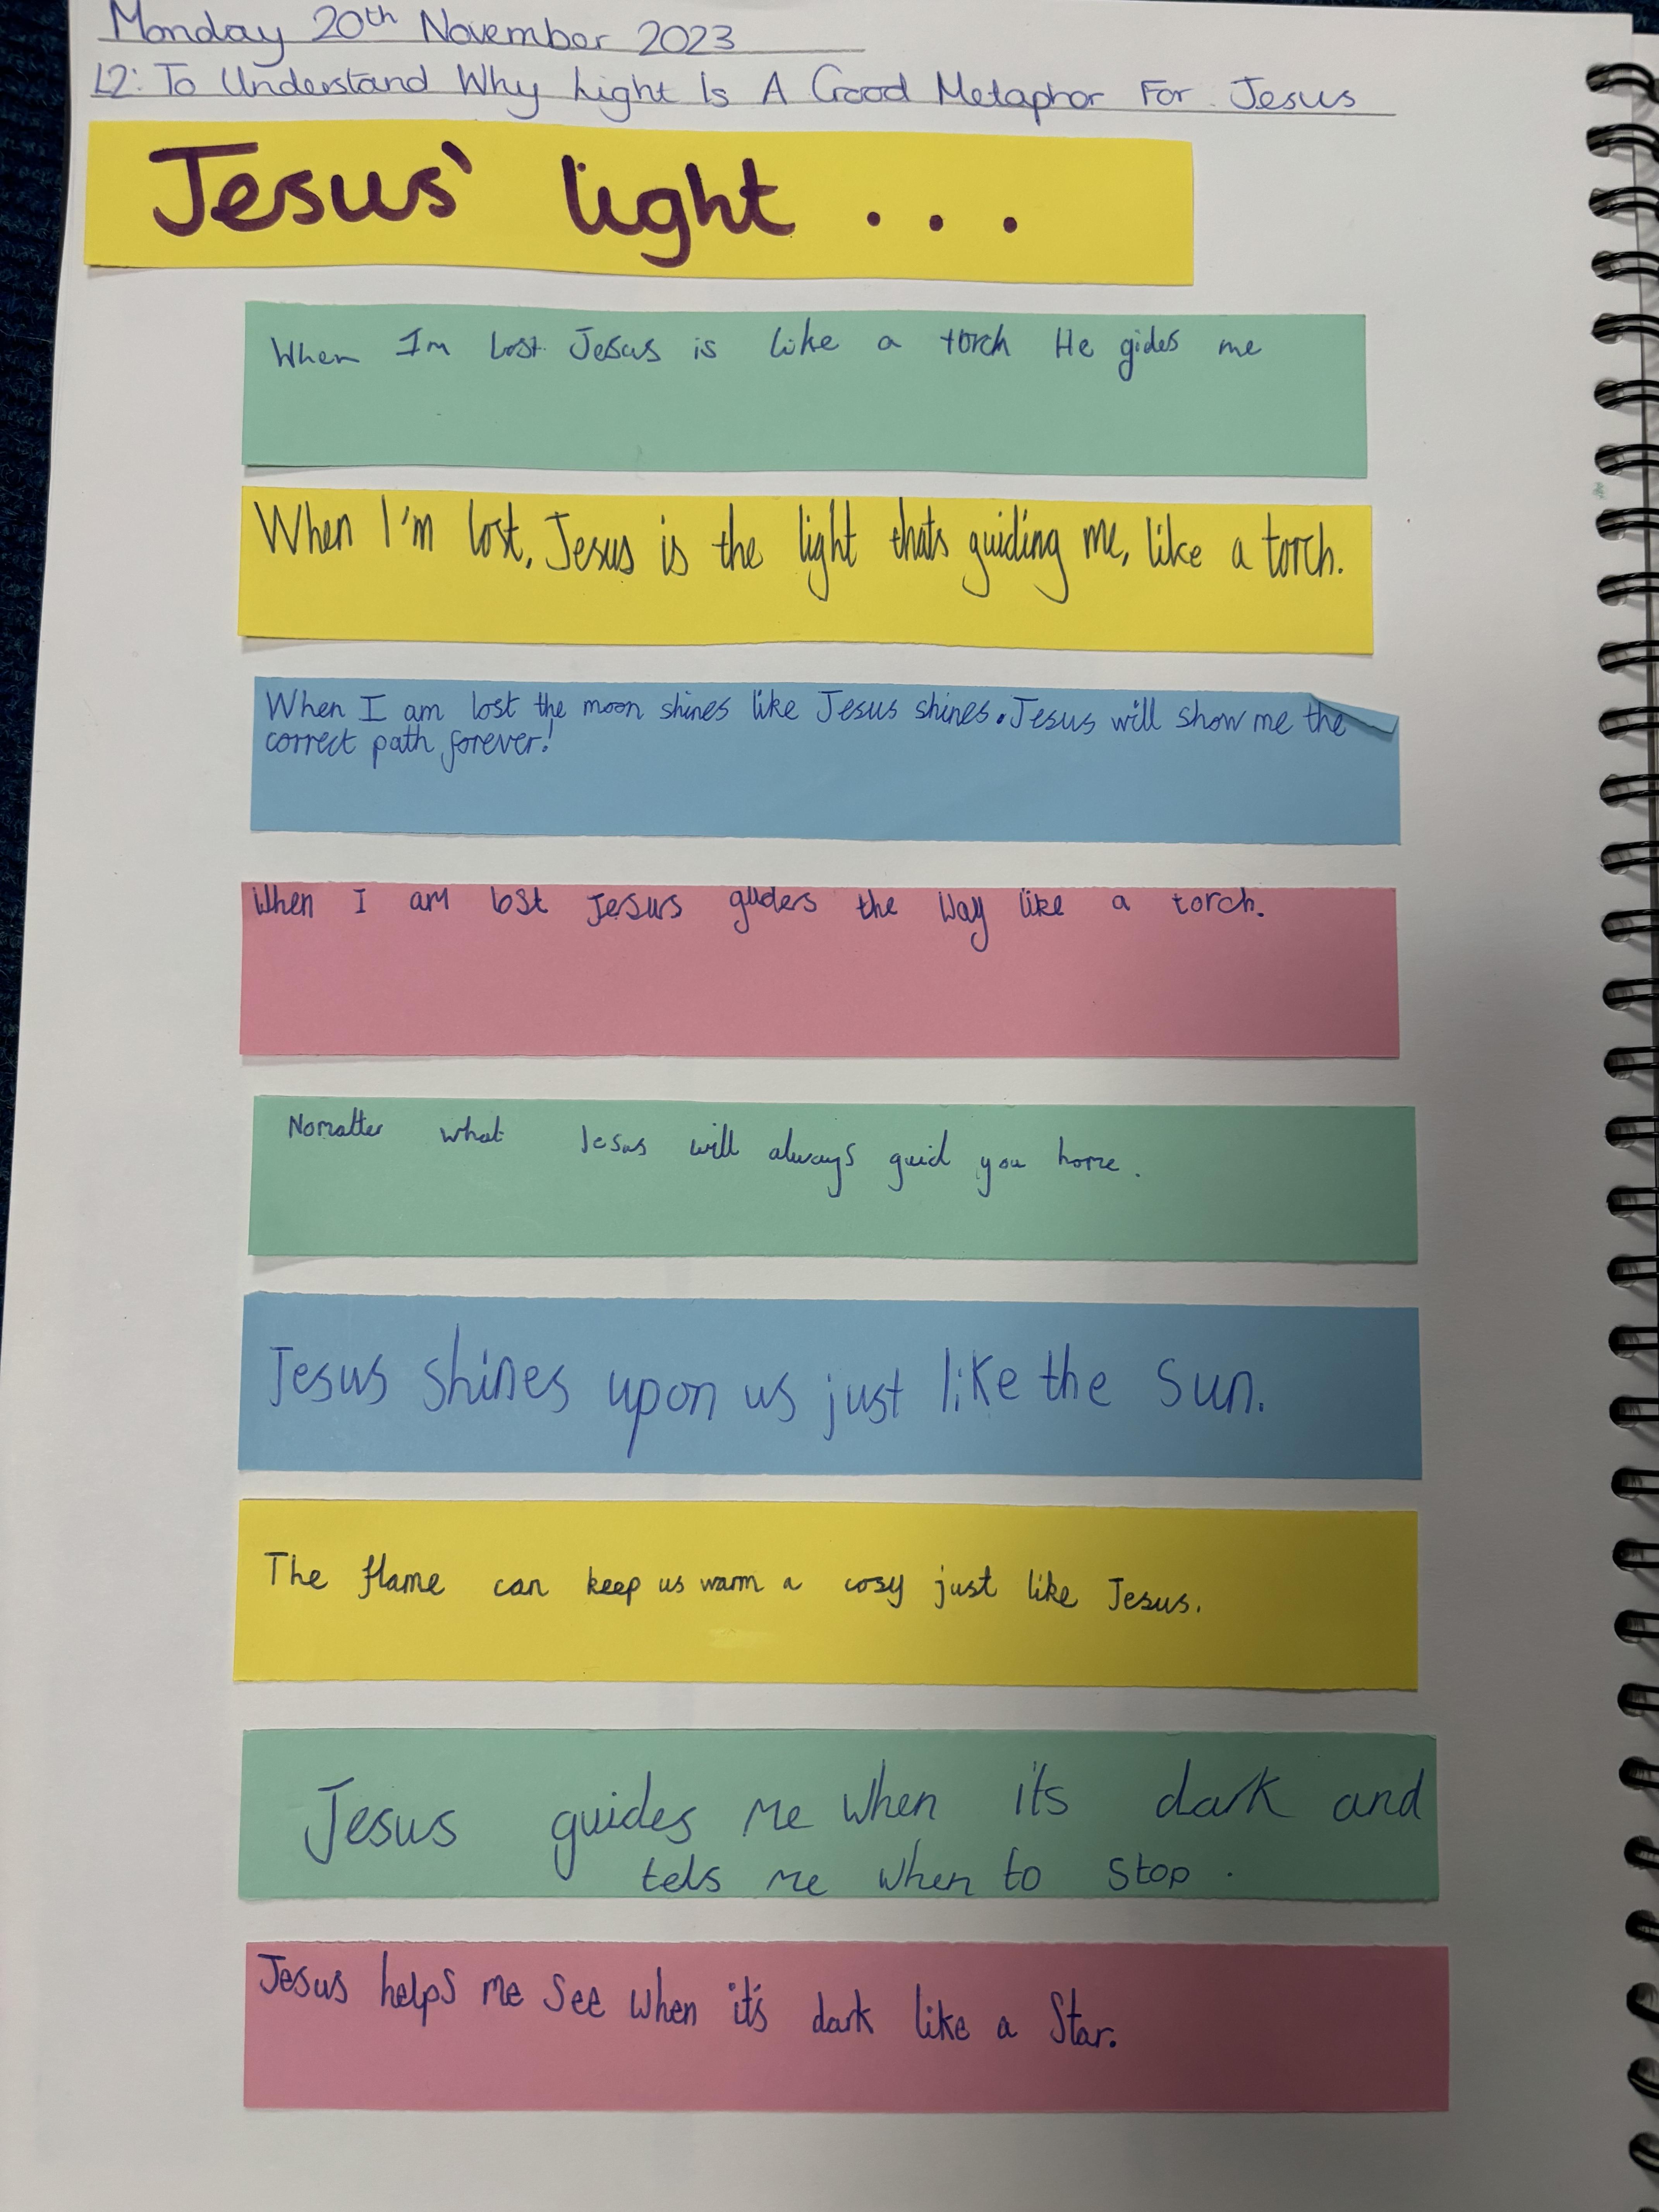 Monday 20th November 2023
L2: To Understand Why Light Is A Good Metaphor For Jesus
Jesus' light ...
When Im lost Jesus is like a torch He gides me
When I'm lost, Jesus is the light thats guiding me, like a torch.
When I am lost the moon shines like Jesus shines. Jesus will show me the
correct path forever!
When I am lost Jesus guiders the way like a torch.
Nomatter what Jesus will always guid you home.
Jesus shines upon us just like the sun.
The flame can keep us warm a cosy just like Jesus.
Jesus guides me when its dark and
tels me when to stop.
Jesus helps me see when it's dark like a star.